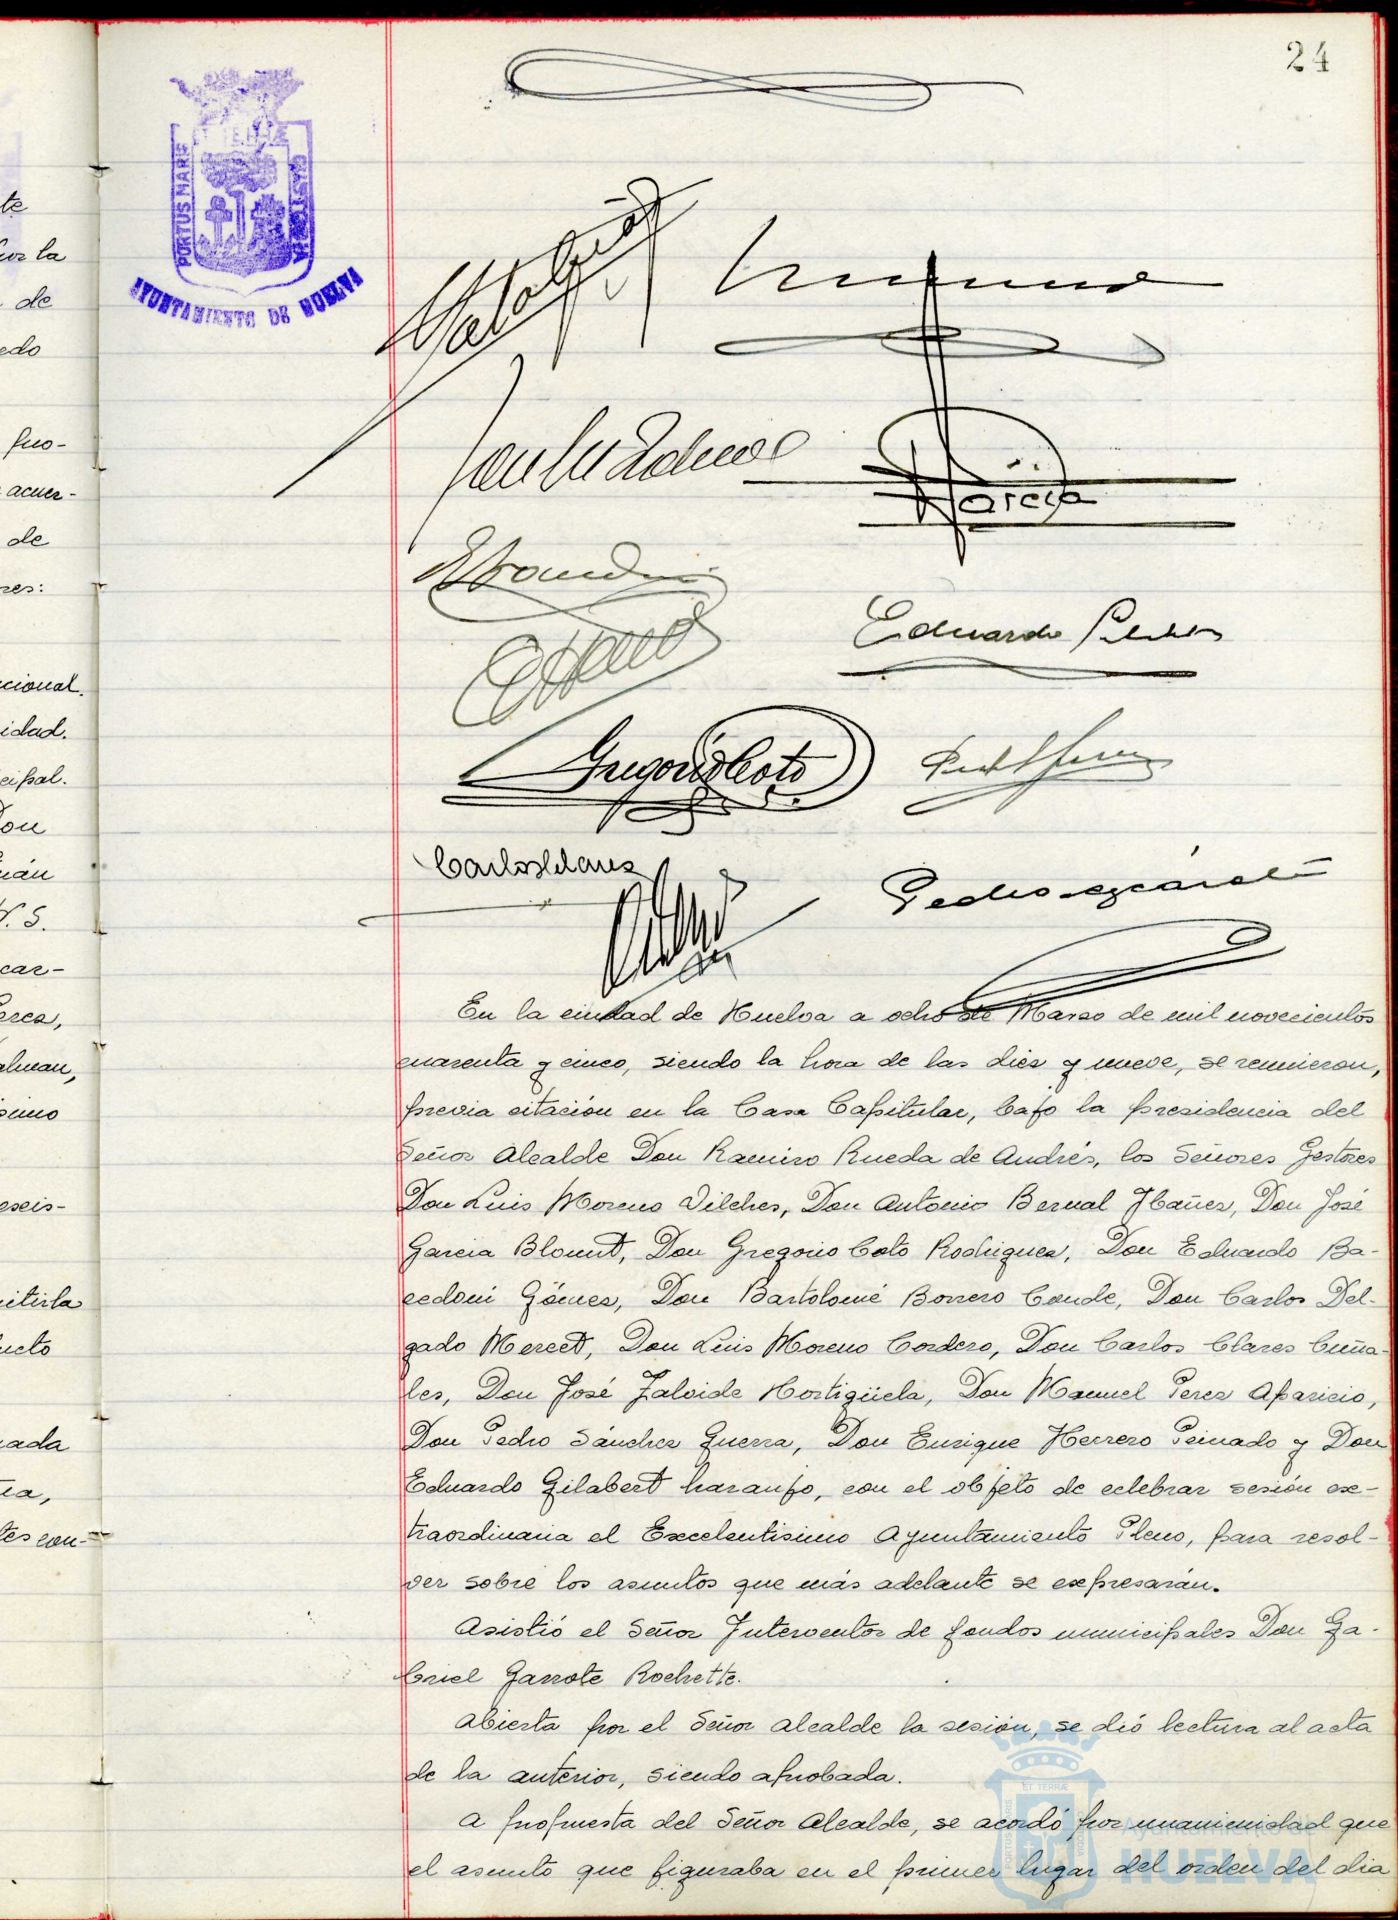 24
PORTUS MARIS
ET TERRÆ
CUSTODIA
AYUNTAMIENTO DE HUELVA
García
Eduardo
Gregorio Coto
Carlos Clares
Pedro
te
por la
de
edo
pro-
acuer-
de
res:
cional.
idad.
cipal.
Don
V. S.
car-
Perez,
eseis-
itirla
ucto
ada
tes con-
En la ciudad de Huelva a ocho de Marzo de mil novecientos
cuarenta y cinco, siendo la hora de las diez y nueve, se reunieron,
previa citación en la Casa Capitular, bajo la presidencia del
Señor Alcalde Don Ramiro Rueda de Andrés, los Señores Gestores
Don Luis Moreno Vilches, Don Antonio Bernal Ibañez, Don José
Garcia Blount, Don Gregorio Coto Rodriguez, Don Eduardo Ba-
cedoni Gómez, Don Bartolomé Borrero Conde, Don Carlos Del-
gado Mercet, Don Luis Moreno Cordero, Don Carlos Clares Cuña-
les, Don José Zalvide Hortigüela, Don Manuel Perez Aparicio,
Don Pedro Sánchez Guerra, Don Enrique Herrero Peinado y Don
Eduardo Gilabert Naranjo, con el objeto de celebrar sesión ex-
traordinaria el Excelentisimo Ayuntamiento Pleno, para resol-
ver sobre los asuntos que más adelante se expresarán.
Asistió el Señor Interventor de fondos municipales Don Ga-
briel Garrote Rochette.
Abierta por el Señor Alcalde la sesión, se dió lectura al acta
de la anterior, siendo aprobada.
A propuesta del Señor Alcalde, se acordó por unanimidad que
el asunto que figuraba en el primer lugar del orden del dia
ET TERRÆ
PORTUS MARIS
CUSTODIA
Ayuntamiento de
HUELVA